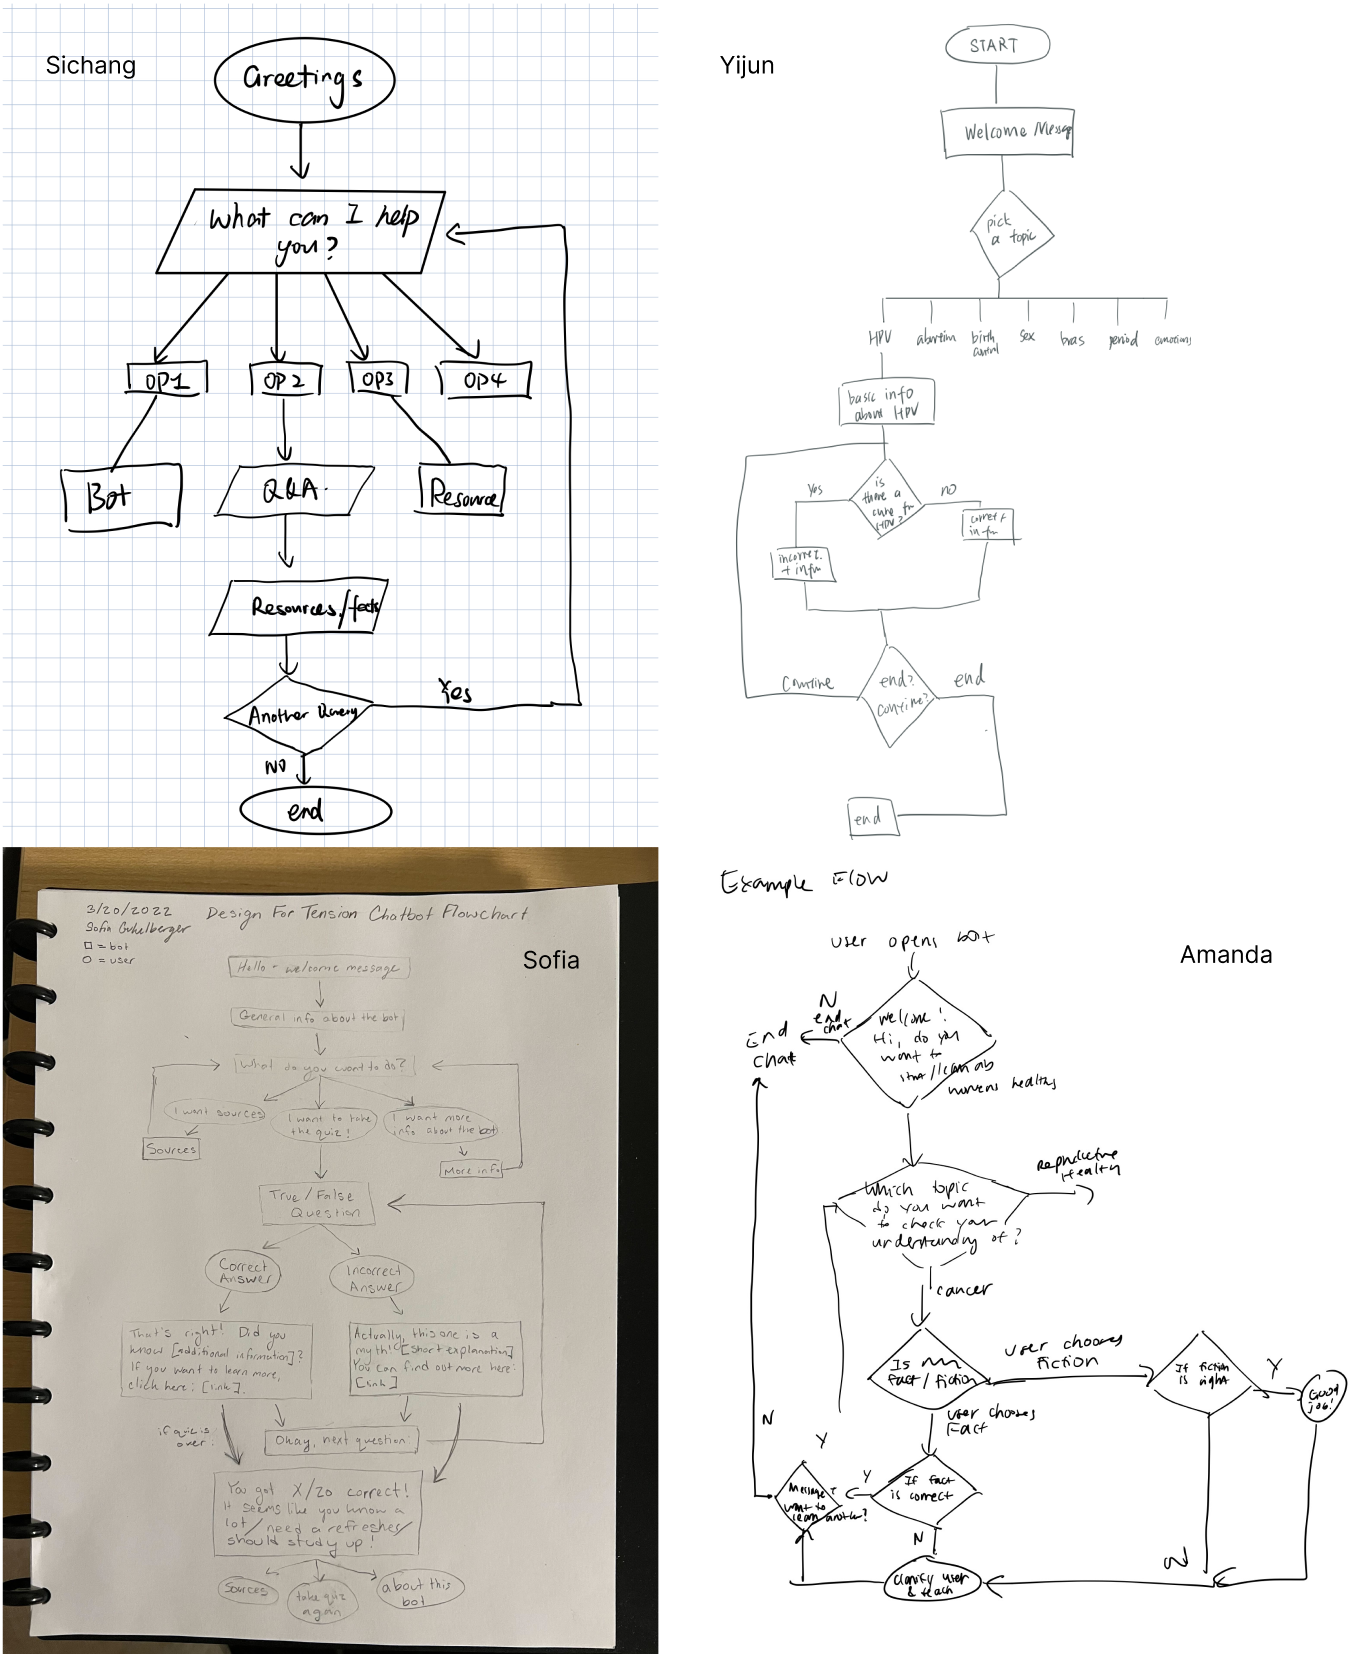 Sichang
Greetings
What can I help
you?
OP1
OP2
OP3
OP4
Bot
Q&A.
Resource
Resources/facts
Another Query
Yes
NO
end
Yijun
START
Welcome Message
pick
a topic
HPV
abortion
birth
control
sex
bras
period
emotions
basic info
about HPV
is
there a
cure for
HPV?
yes
no
incorrect.
+ infm
correct +
infm
end?
continue?
end
end
3/20/2022
Design For Tension Chatbot Flowchart
Sofia
□ = bot
○ = user
Sofia
Hello - welcome message
General info about the bot
What do you want to do?
I want sources
I want to take
the quiz!
I want more
info about the bot
Sources
More info
True/False
Question
Correct
Answer
Incorrect
Answer
That's right! Did you
know [additional information]?
If you want to learn more,
click here: [link].
Actually, this one is a
myth! [short explanation]
You can find out more here:
[link]
if quiz is
over:
Okay, next question:
You got X/20 correct!
It seems like you know a
lot/need a refresher/
should study up!
Sources
take quiz
again
about this
bot
Example Flow
Amanda
user opens bot
N
end
chat
End
chat
Welcome!
Hi, do you
want to
womens health
Which topic
do you want
to check your
understanding of?
Reproductive
Health
cancer
Is
fact/fiction
user chooses
Fiction
If fiction
is right
Y
Good
job!
user chooses
Fact
If fact
is correct
Y
N
Message
want to
learn another?
Y
N
N
Clarify user
& teach